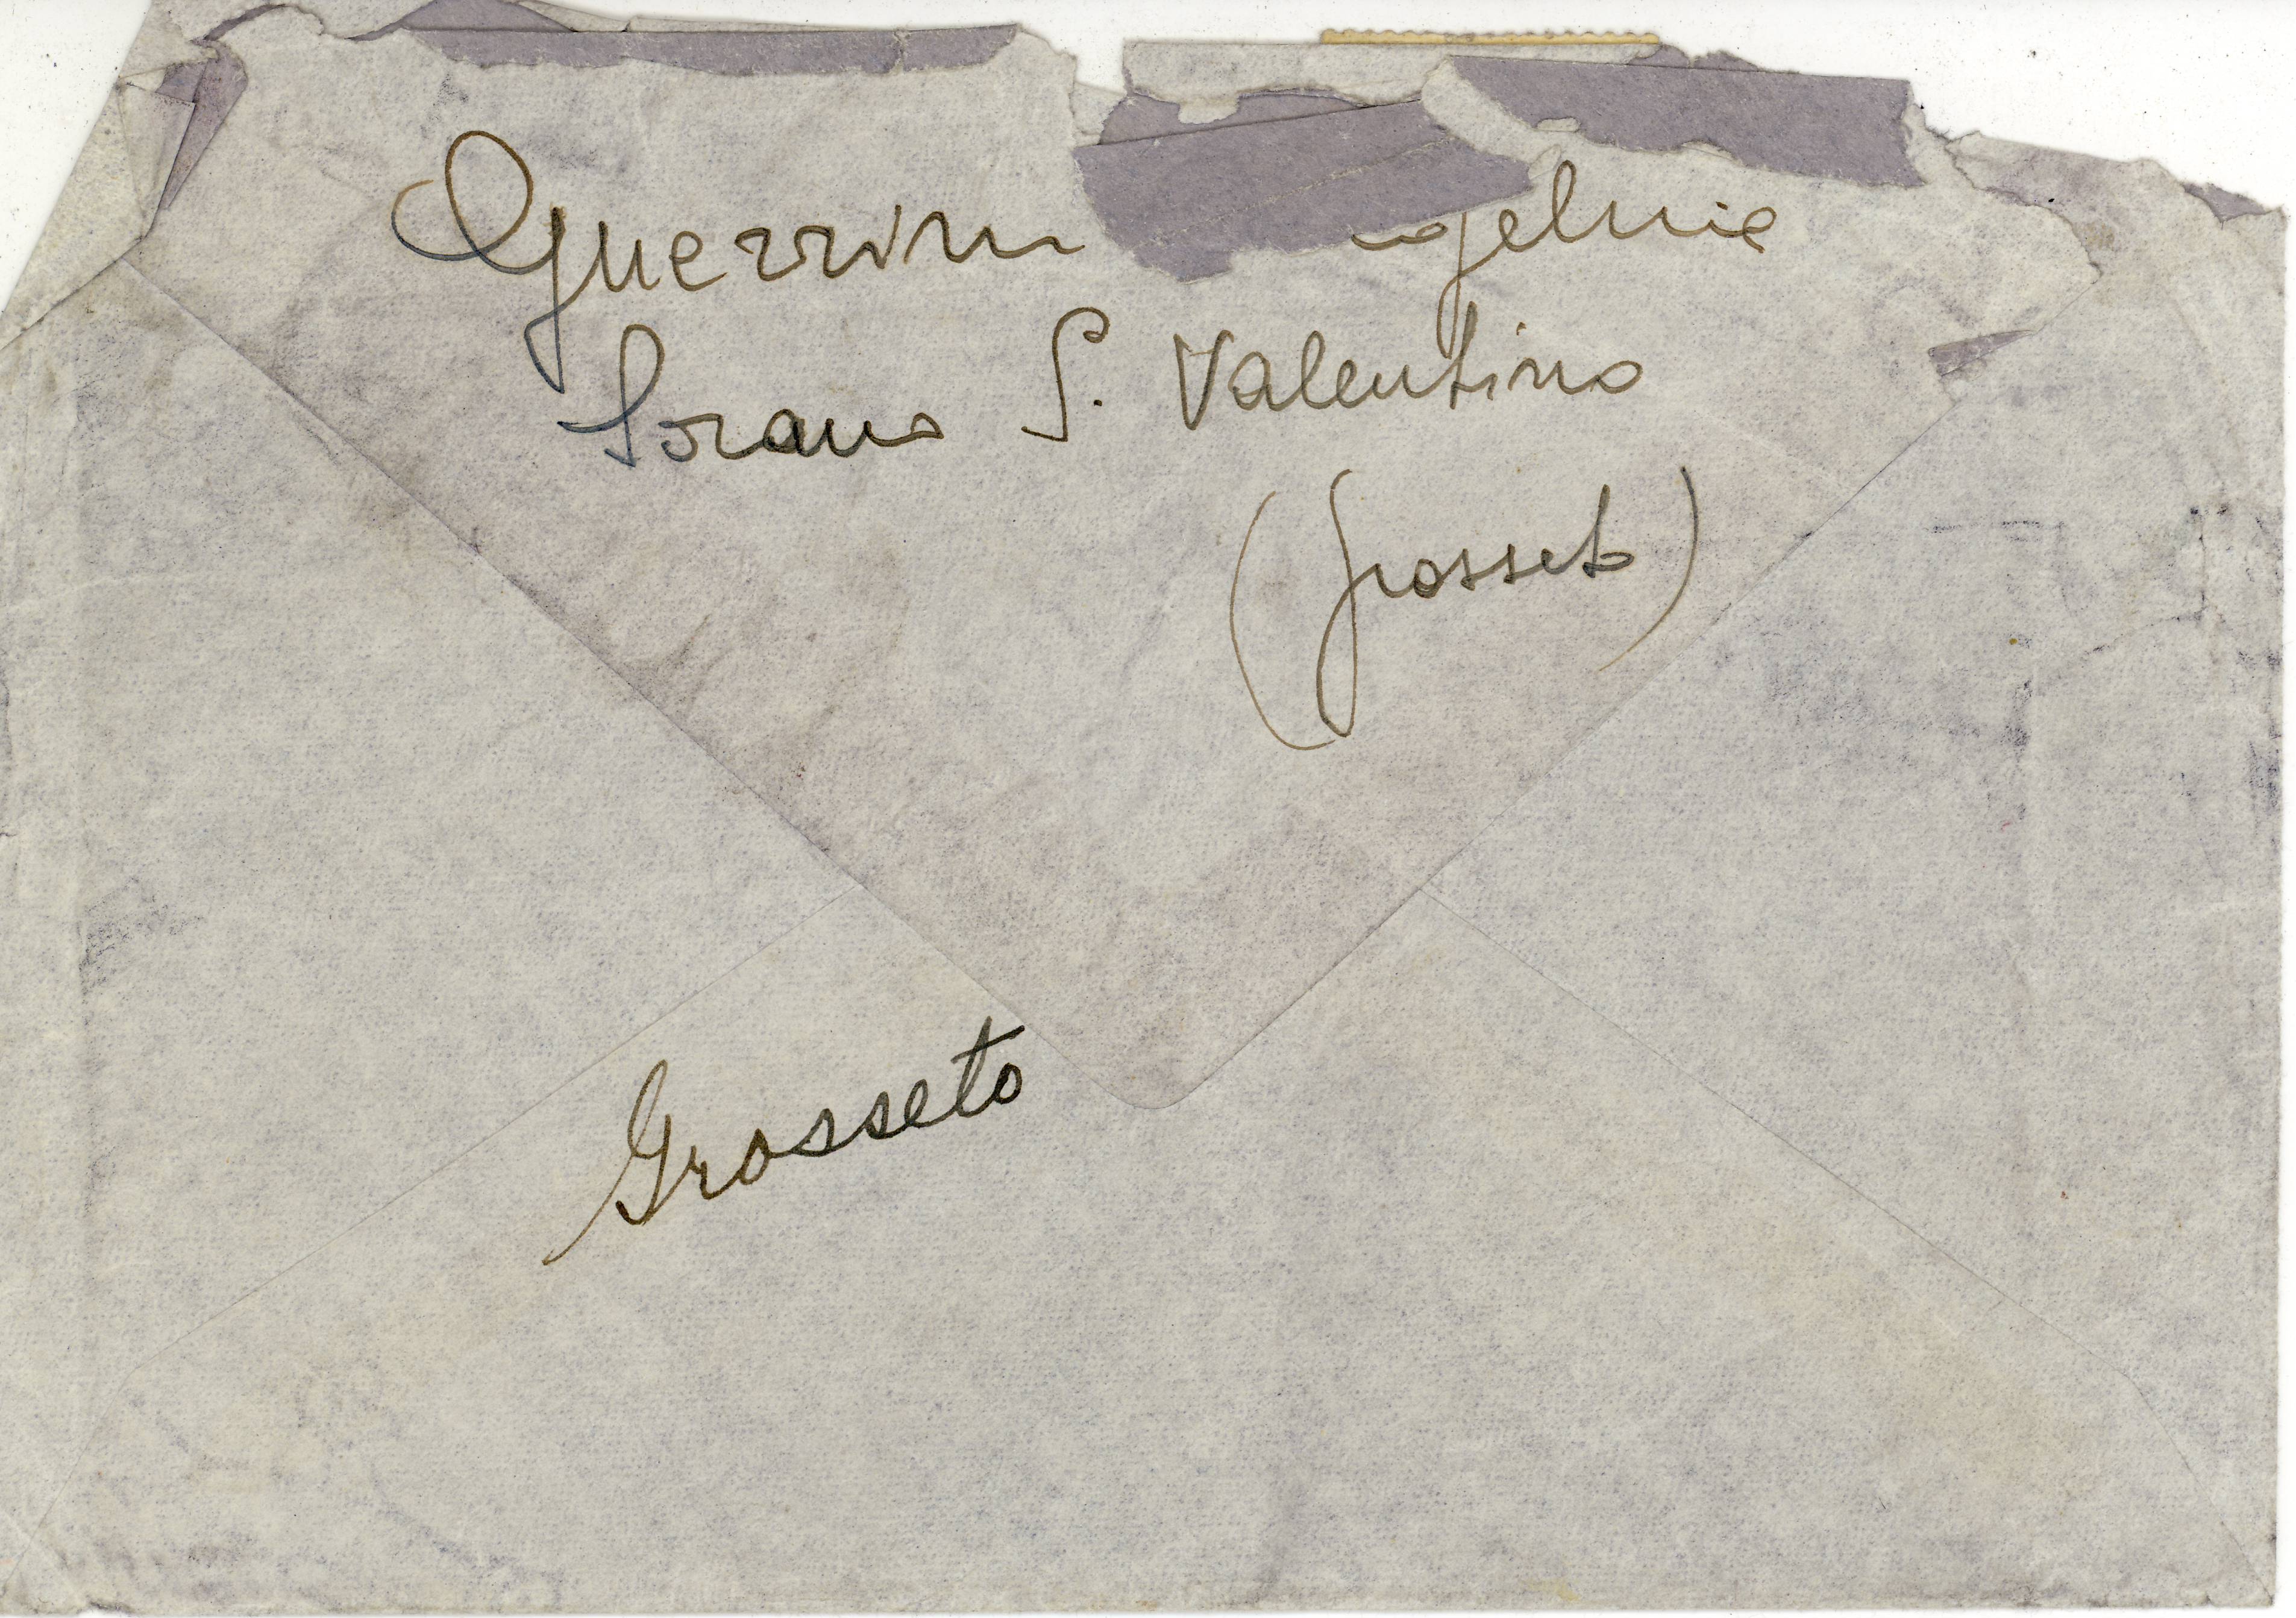 Guerrini
Sorano S. Valentino
(Grosseto)
Grosseto